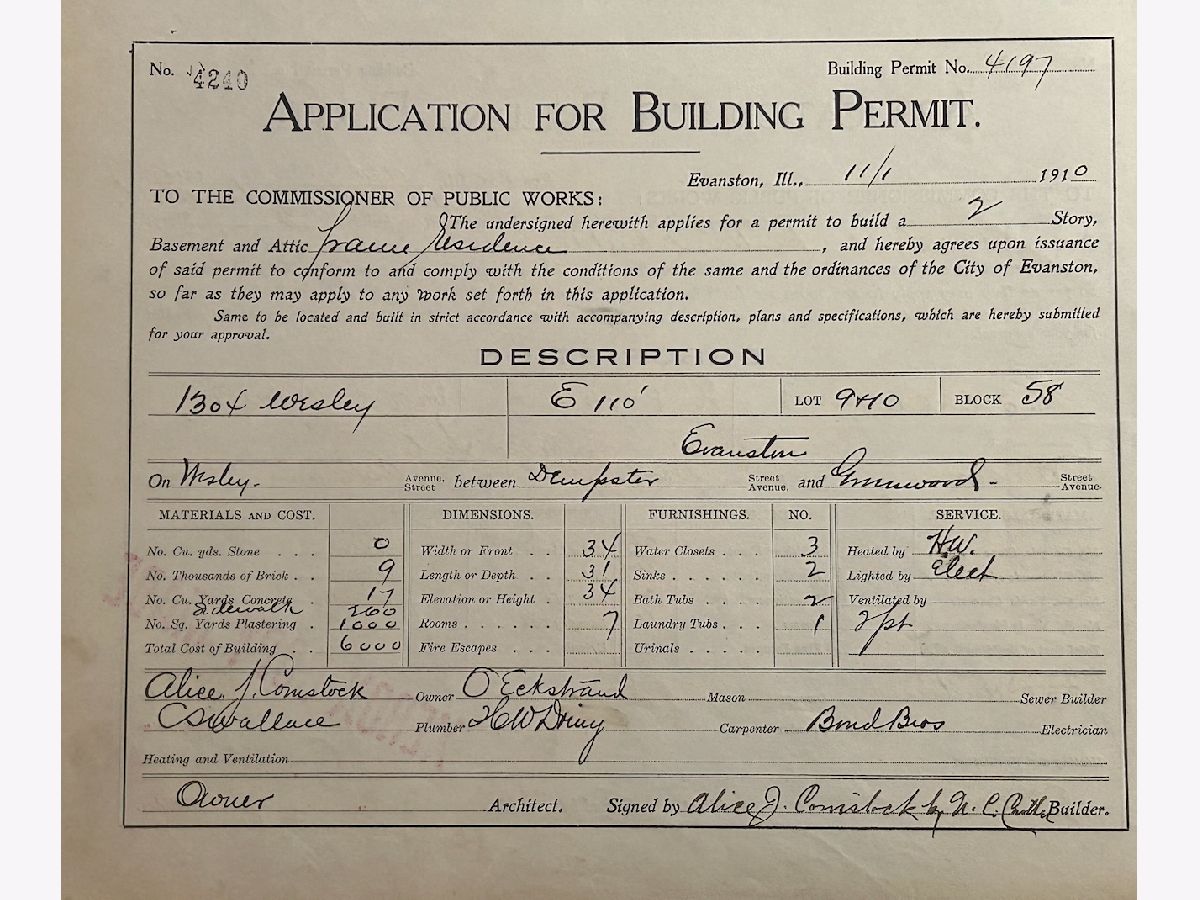 No. 4240
Building Permit No. 4197
APPLICATION FOR BUILDING PERMIT.
Evanston, Ill., 11/1 1910
TO THE COMMISSIONER OF PUBLIC WORKS:
The undersigned herewith applies for a permit to build a 2 Story,
Basement and Attic frame residence, and hereby agrees upon issuance
of said permit to conform to and comply with the conditions of the same and the ordinances of the City of Evanston,
so far as they may apply to any work set forth in this application.
Same to be located and built in strict accordance with accompanying description, plans and specifications, which are hereby submitted
for your approval.
DESCRIPTION
1304 Wesley E 110' LOT 9+10 BLOCK 58
Evanston
On Wesley. Avenue. Street between Dempster Street Avenue. and Greenwood - Street Avenue.
MATERIALS AND COST. DIMENSIONS. FURNISHINGS. NO. SERVICE.
No. Cu. yds. Stone . . . 0 Width or Front . . 34 Water Closets . . . 3 Heated by H.W.
No. Thousands of Brick . . 9 Length or Depth . . 31 Sinks . . . . . . 2 Lighted by Elect
No. Cu. Yards Concrete . 17 Elevation or Height . 34 Bath Tubs . . . 2 Ventilated by
Sidewalk 200
No. Sq. Yards Plastering . 1000 Rooms . . . . . . 7 Laundry Tubs . . . 1 2 pt
Total Cost of Building . . 6000 Fire Escapes . . . Urinals . . . . .
Alice J. Comstock Owner O Eckstrand Mason Sewer Builder
CS Wallace Plumber H W Carpenter Bond Bros Electrician
Heating and Ventilation
Owner Architect. Signed by Alice J. Comstock by N. C. Builder.